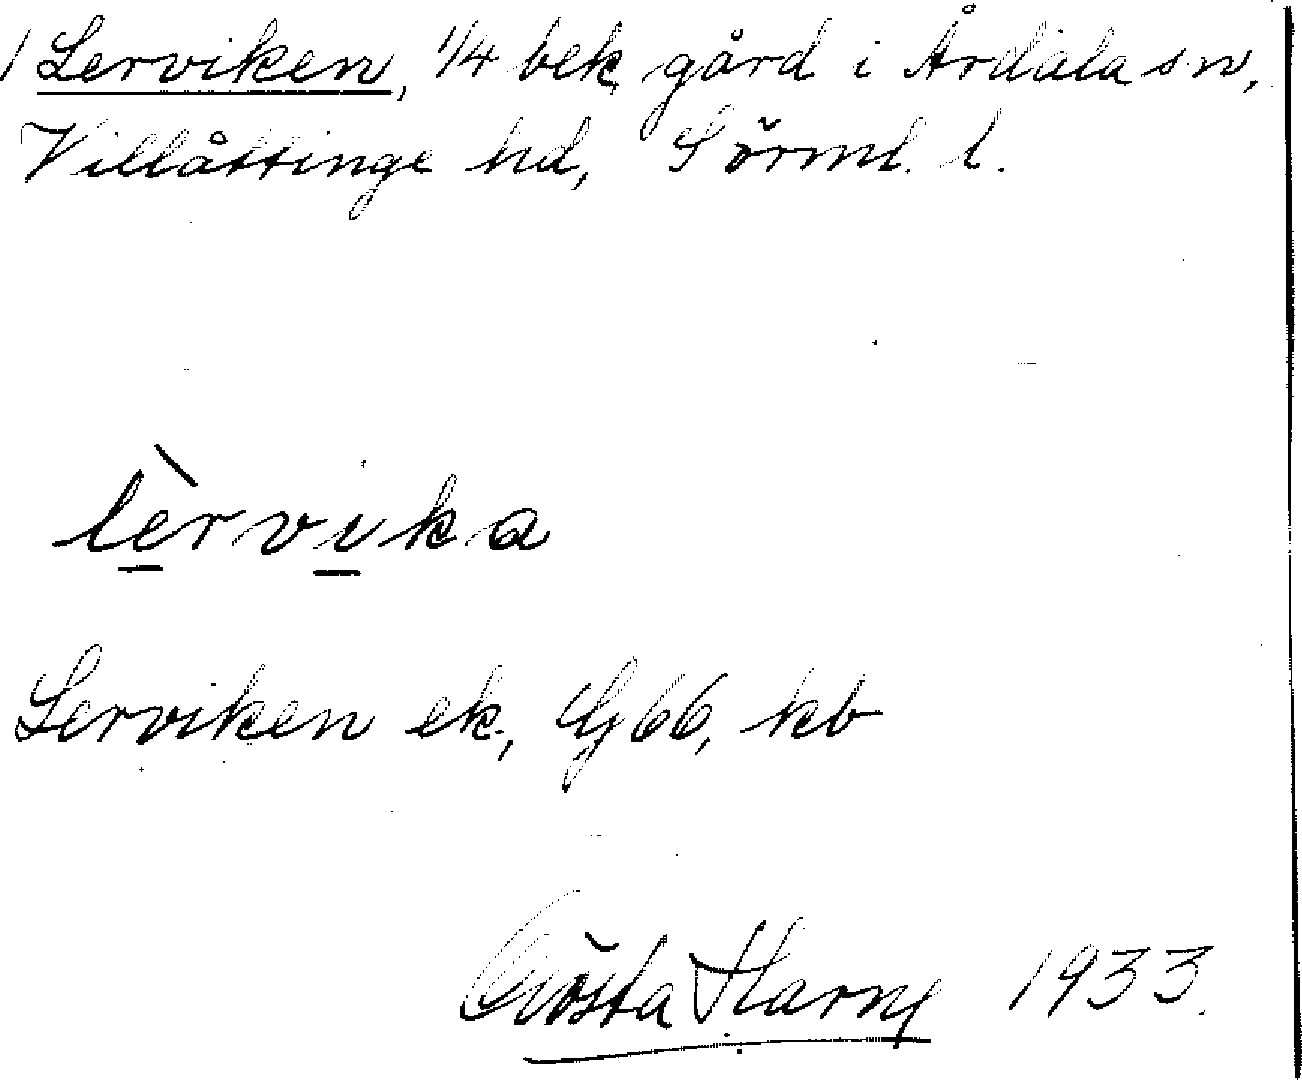 1 Lerviken, 1/4 bek gård i Årdala sn,
Villåttinge hd, Sörml. l.
lèrvika
Lerviken ek, Gj 66, kb
Gösta Harny 1933.